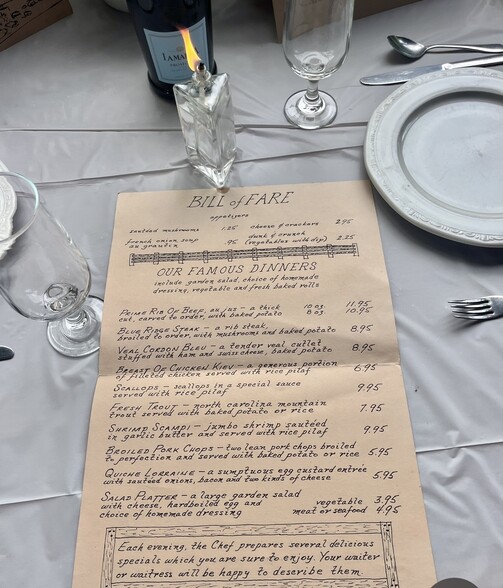 BILL of FARE
appetizers
sautéed mushrooms 1.25 cheese & crackers 2.95
french onion soup .95 dunk & crunch
au gratin (vegetables with dip) 2.25
OUR FAMOUS DINNERS
include garden salad, choice of homemade
dressing, vegetable and fresh baked rolls
PRIME RIB OF BEEF, au jus – a thick 10 oz. 11.95
cut, carved to order, with baked potato 8 oz. 10.95
BLUE RIDGE STEAK – a rib steak,
broiled to order, with mushrooms and baked potato 8.95
VEAL CORDON BLEU – a tender veal cutlet
stuffed with ham and swiss cheese, baked potato 8.95
BREAST OF CHICKEN KIEV – a generous portion 6.95
of filleted chicken served with rice pilaf
SCALLOPS – scallops in a special sauce
served with rice pilaf 9.95
FRESH TROUT – north carolina mountain
trout served with baked potato or rice 7.95
SHRIMP SCAMPI – jumbo shrimp sautéed
in garlic butter and served with rice pilaf 9.95
BROILED PORK CHOPS – two lean pork chops broiled
to perfection and served with baked potato or rice 5.95
QUICHE LORRAINE – a sumptuous egg custard entrée
with sautéed onions, bacon and two kinds of cheese 5.95
SALAD PLATTER – a large garden salad
with cheese, hardboiled egg and vegetable 3.95
choice of homemade dressing meat or seafood 4.95
Each evening, the Chef prepares several delicious
specials which you are sure to enjoy. Your waiter
or waitress will be happy to describe them